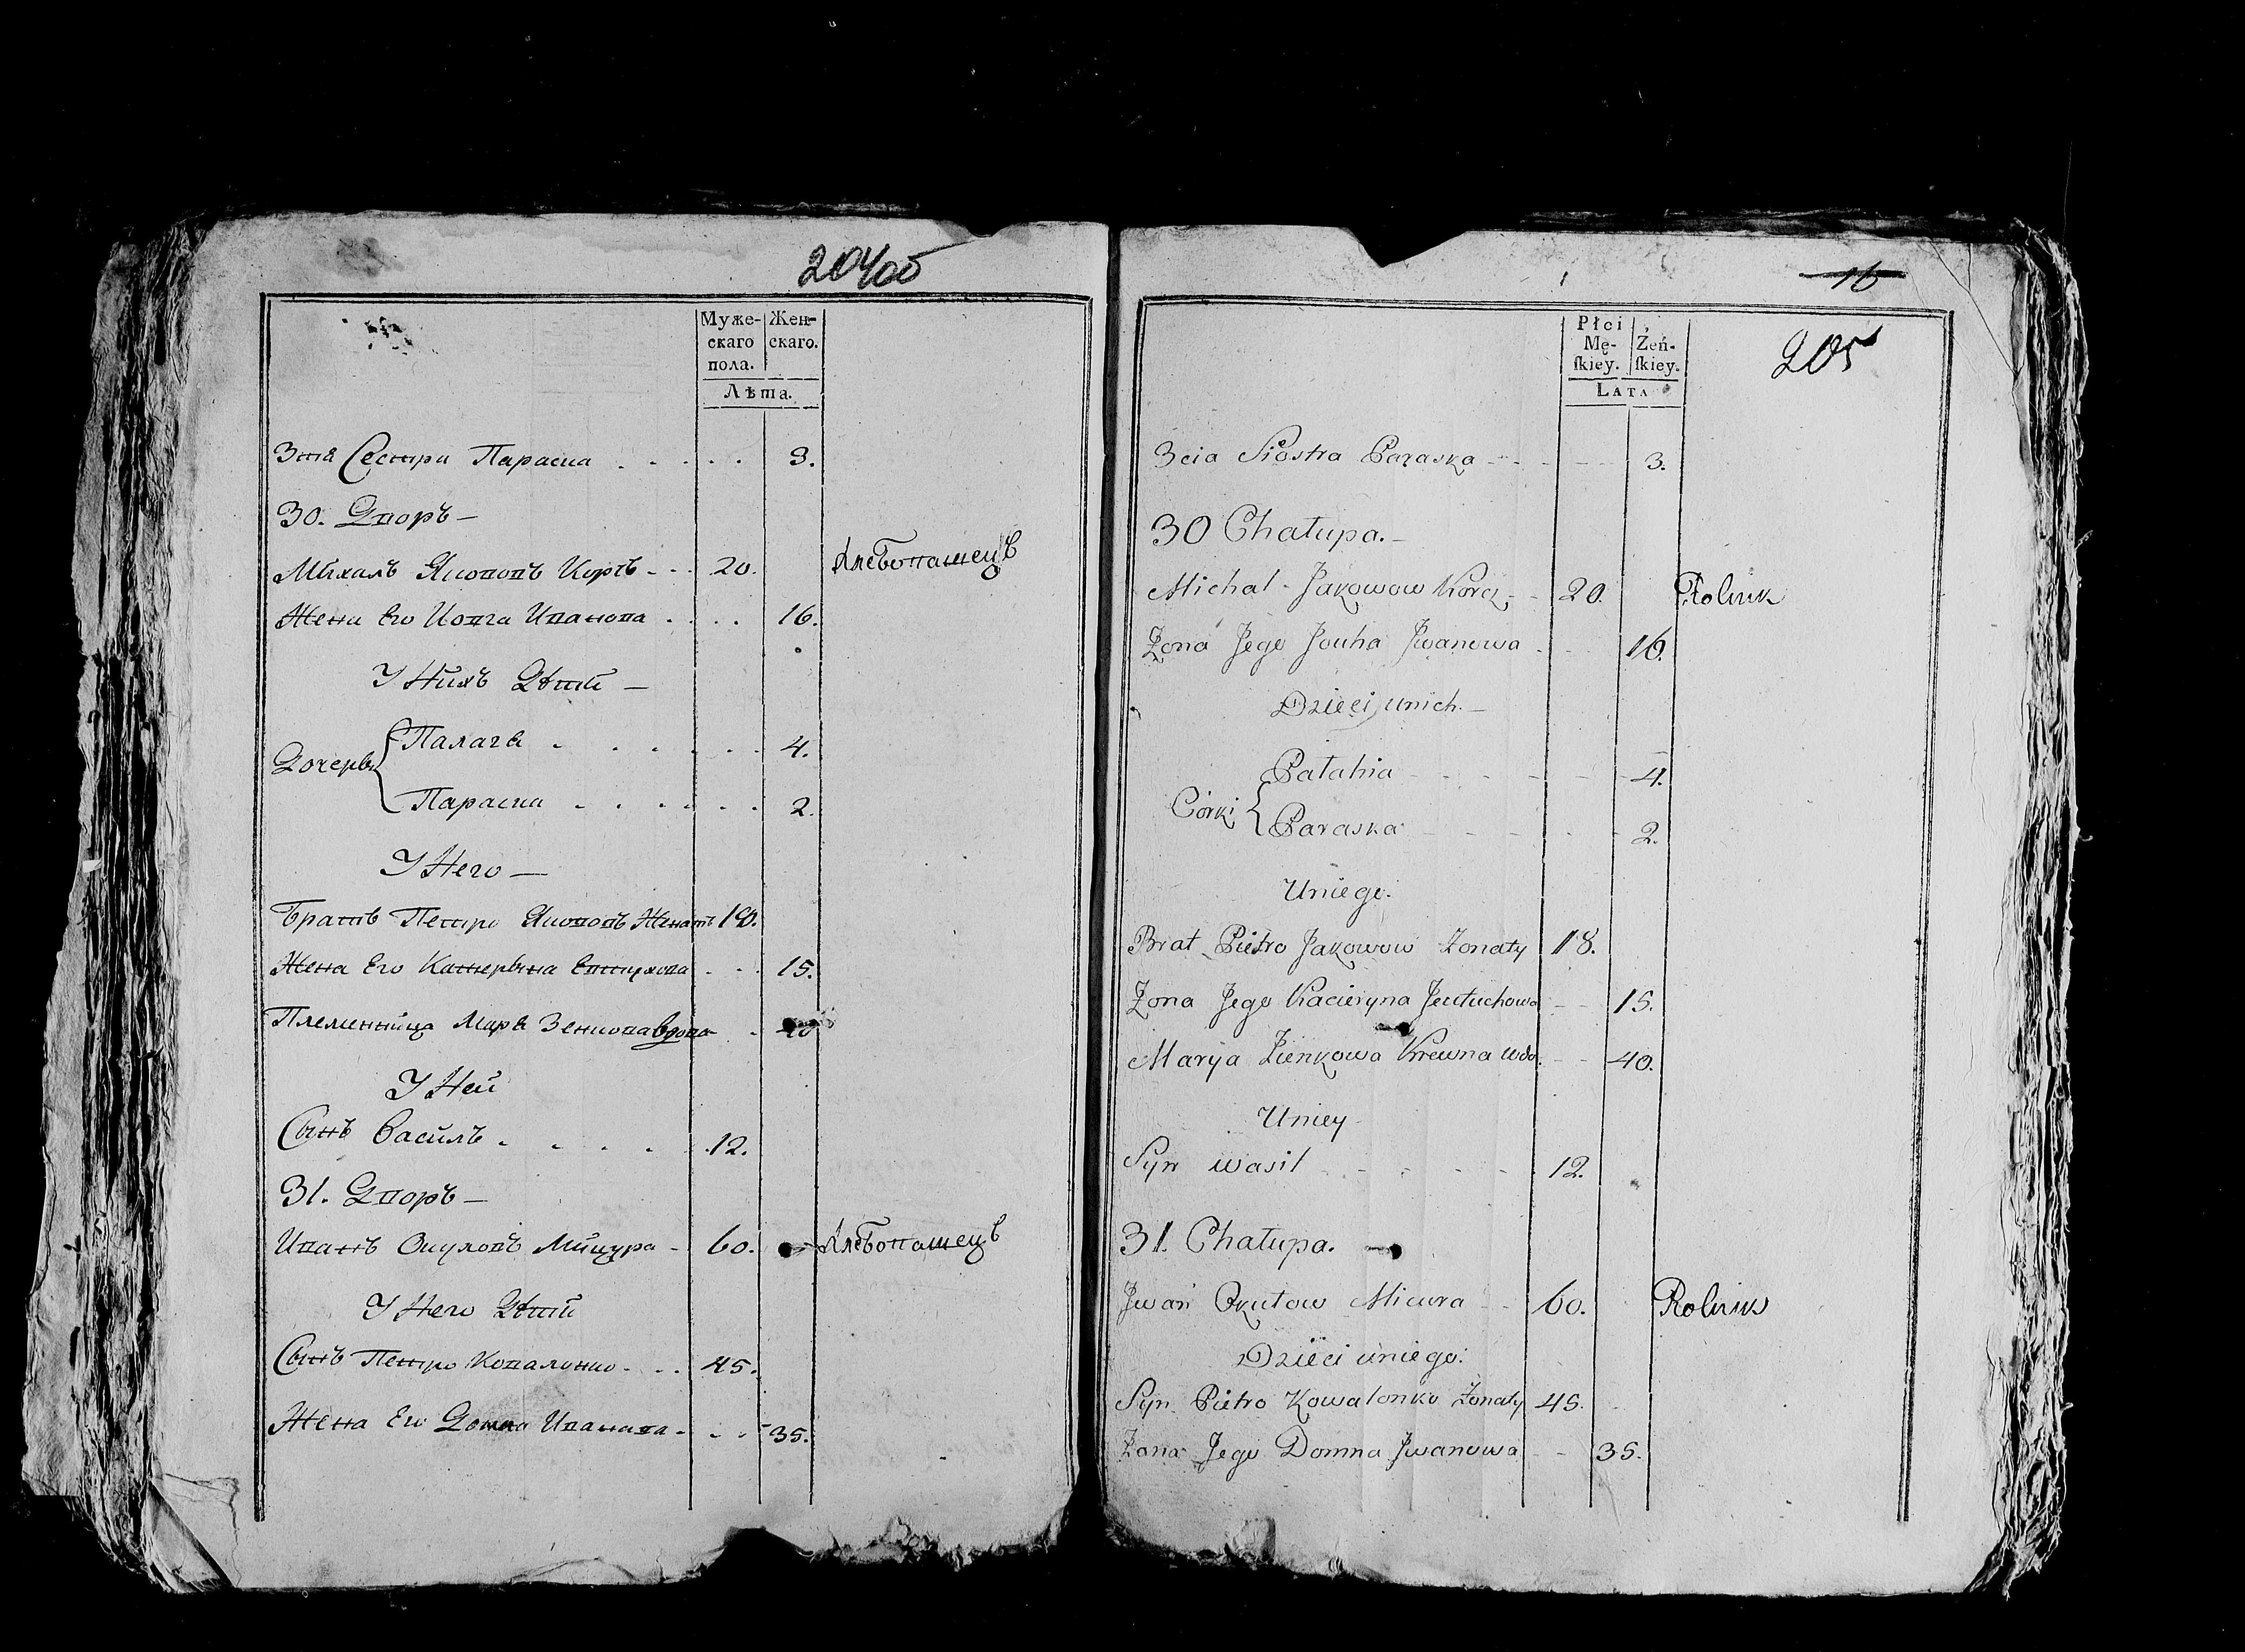 204об
Муже-
скаго
пола.
Жен-
скаго.
Лѣта.
3тя Сестра Параска 3.
30. Дворъ
Михалъ Якововъ Корчъ 20. Хлебопашецъ
Жена Его Иовга Иванова 16.
У Нихъ Дѣти
Дочери
Палагѣ 4.
Параска 2.
У Него
Братъ Петро Якововъ Женатъ 18.
Жена Его Катерина Евтухова 15.
Племенница Маря Зенкова вдова 40
У Ней
Сынъ Василь 12.
31. Дворъ
Иванъ Окуловъ Мицура 60. Хлебопашецъ
У Него Дѣти
Сынъ Петро Коваленко 45.
Жена Его Домна Иванова 35.
16
205
Płci
Mę-
ſkiey.
Żeń-
ſkiey.
Lata
3cia Siostra Paraska 3.
30 Chałupa.
Michał Jakowow Korcz 20. Rolnik
Żona Jego Jouha Jwanowa 16.
Dzieci unich.
Córki
Pałahia 4.
Paraska 2.
Uniego.
Brat Pietro Jakowow Żonaty 18.
Żona Jego Kacieryna Jeutuchowa 15.
Marya Zienkowa Krewna wdo. 40.
Uniey
Syn wasil 12.
31. Chałupa.
Jwan Okułow Micura 60. Rolnik
Dzieci uniego.
Syn Pietro Kowalonko Żonaty 45.
Żona Jego Domna Jwanowa 35.